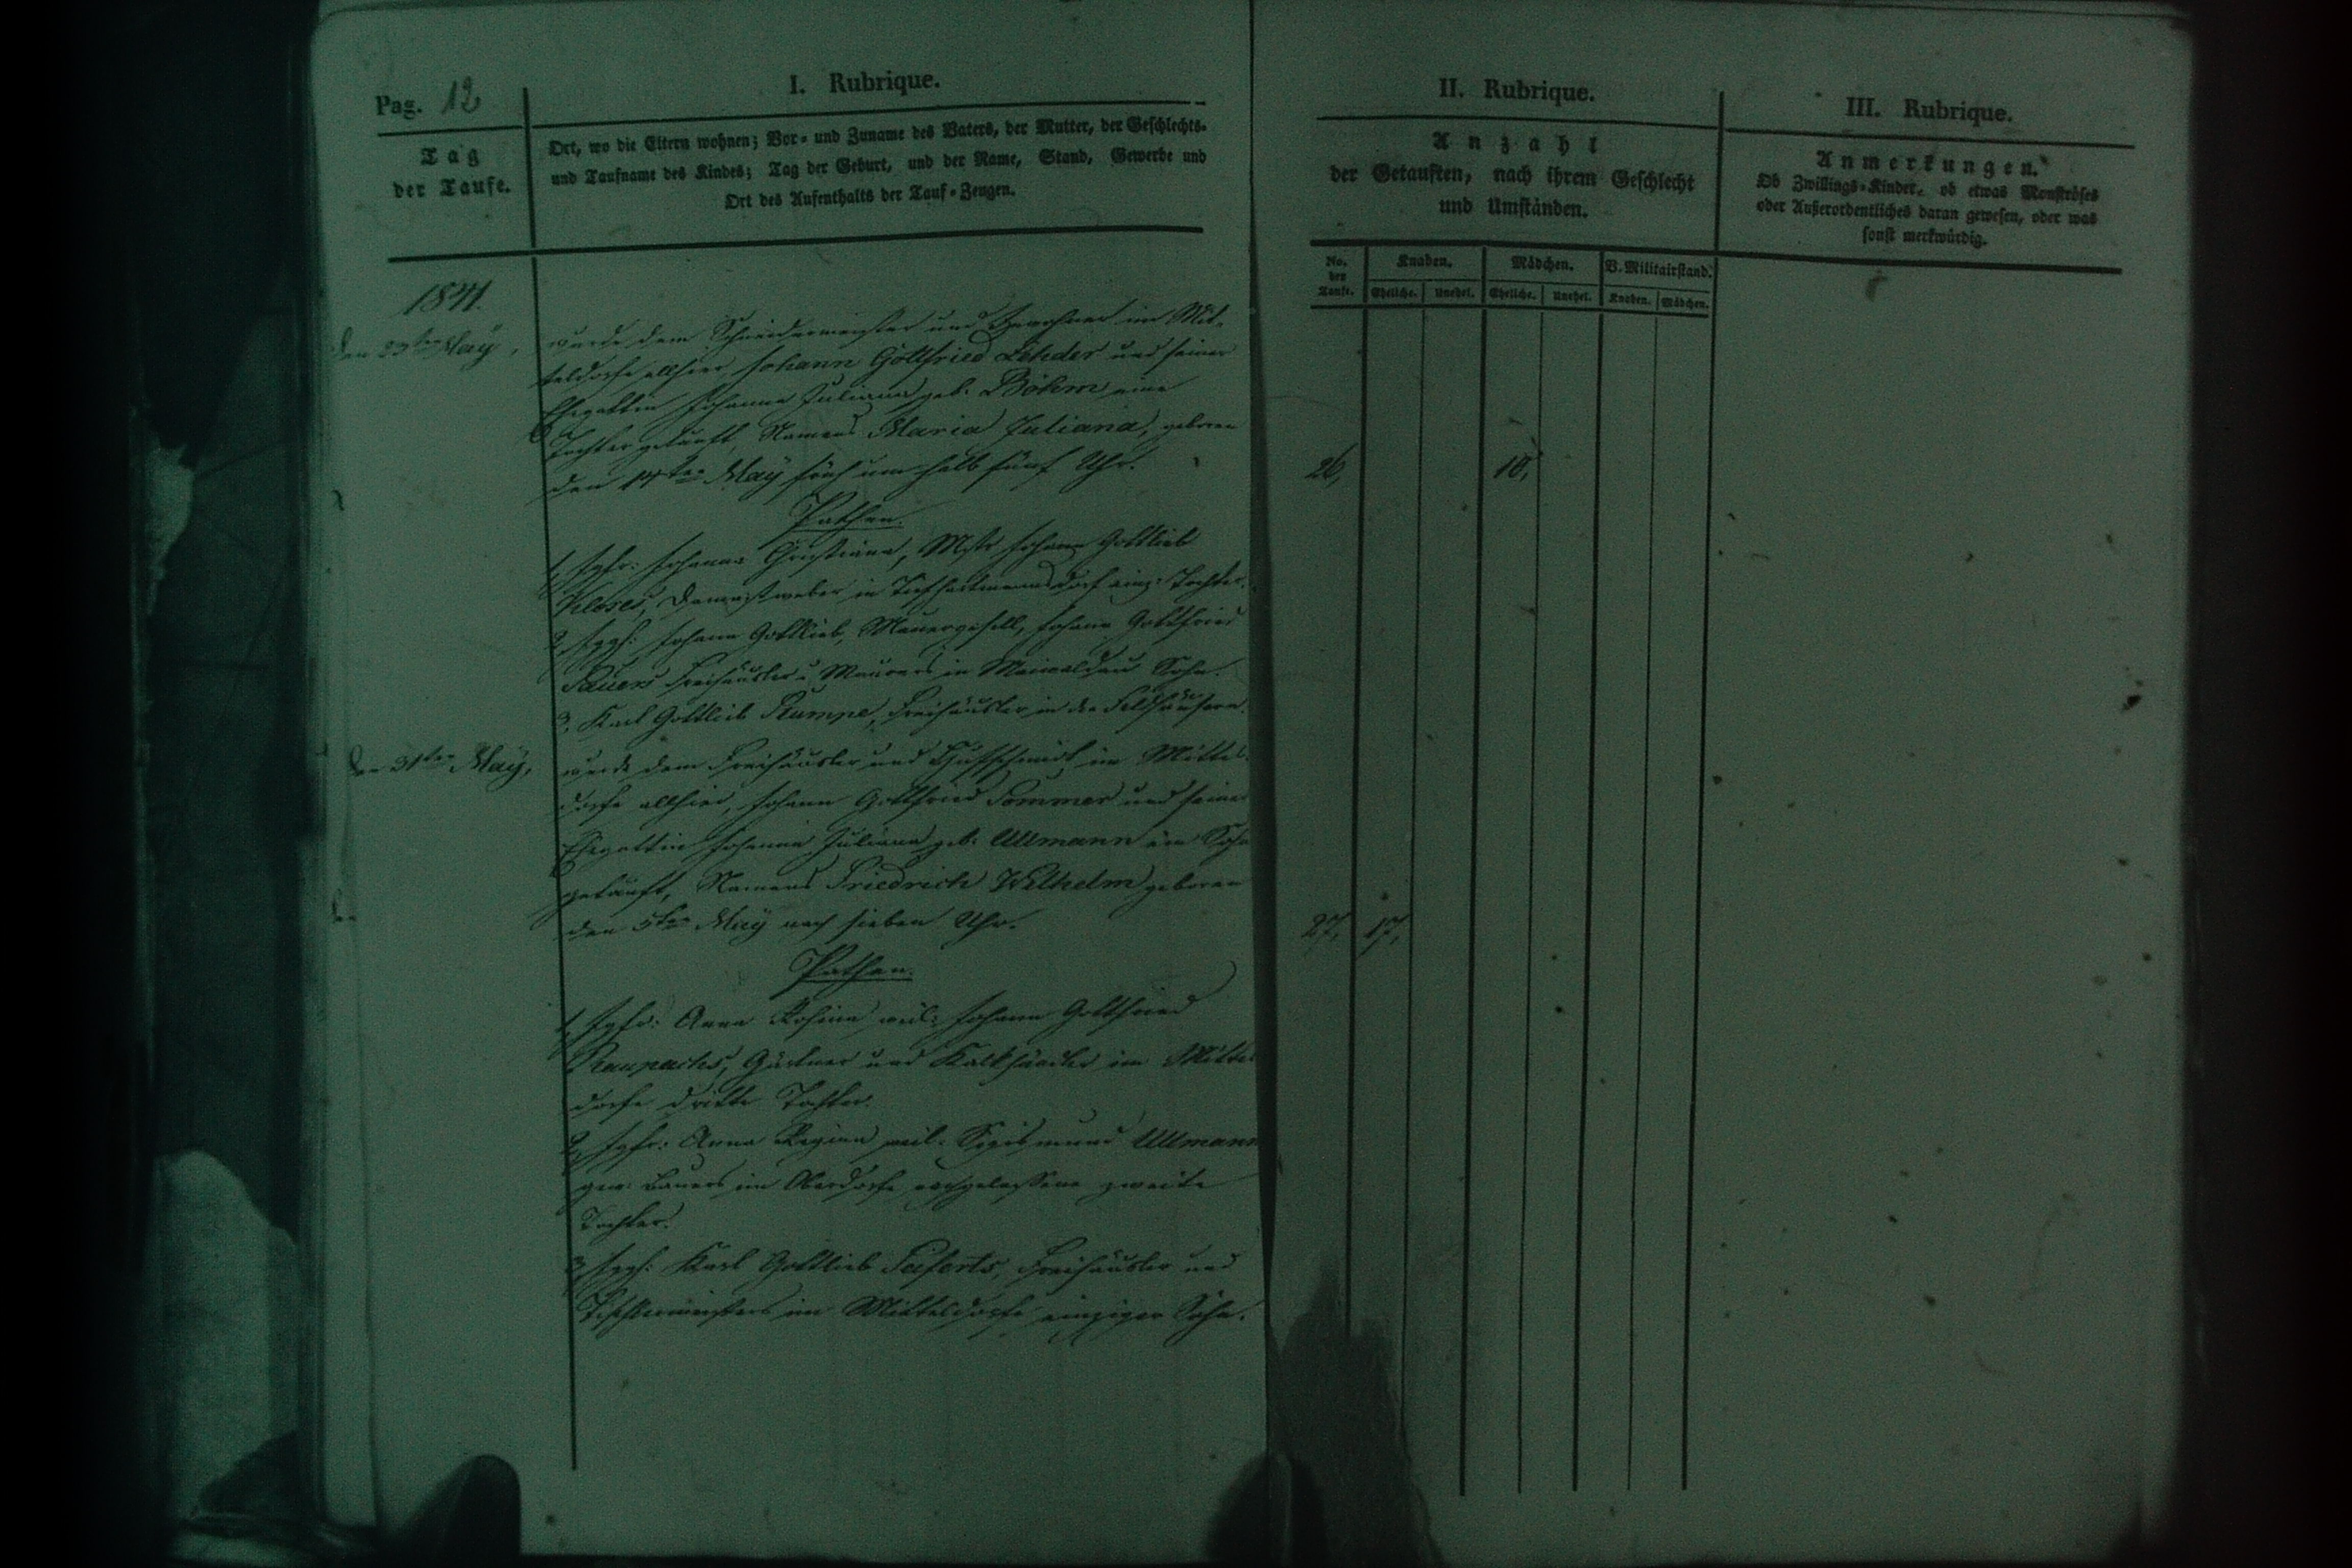 Pag. 12
I. Rubrique.
Tag
der Taufe.
Ort, wo die Eltern wohnen; Vor- und Zuname des Vaters, der Mutter, der Geschlechts-
und Taufname des Kindes; Tag der Geburt, und der Name, Stand, Gewerbe und
Ort des Aufenthalts der Tauf-Zeugen.
1841.
den 23ten May,
wurde dem Schneidermeister und Inwohner im Mit-
teldorfe allhier, Johann Gottfried und seiner
Ehegattin Johanna Juliana geb. Böhm eine
Tochter getauft, Namens Maria Juliana, geboren
den 17ten May früh um halb fünf Uhr.
Pathen.
1, Jgfr: Johanna Christiana, Mstr Johann Gottlieb
Kloses, Damastweber in Tiefhartmannsdorf einz: Tochter.
2, Jggs: Johann Gottlieb, Mauergesell, Johann Gottfried
Freihäusler u Maurers in Maiwaldau Sohn.
3, Karl Gottlieb Rumpe, Freihäusler in den Feldhäusern.
den 31ten May,
wurde dem Freihäusler und Hufschmidt im Mittel-
dorfe allhier, Johann Gottfried Sommer und seiner
Ehegattin Johanna Juliana geb. Ullmann ein Sohn
getauft, Namens Friedrich Wilhelm geboren
den 5ten May nach sieben Uhr.
Pathen.
1, Jgfr: Anna Rosina weil: Johann Gottfried
Raupachs, Gärtner und Kalkhändler im Mittel
dorfe dritte Tochter.
2, Jgfr: Anna Regina weil. Sigismund Ullmann
gew: Bauers im Oberdorfe nachgelassene zweite
Tochter.
3, Jggs: Karl Gottlieb Seiferts, Freihäusler und
Tischlermeisters im Mitteldorfe einziger Sohn.
II. Rubrique.
Anzahl
der Getauften, nach ihrem Geschlecht
und Umständen.
No.
der
Taufe.
Knaben. Mädchen. V. Militairstand.
Eheliche. Unehel. Eheliche. Unehel. Knaben. Mädchen.
26, 10,
27, 17,
III. Rubrique.
Anmerkungen.
Ob Zwillings-Kinder, ob etwas Monströses
oder Außerordentliches daran gewesen, oder was
sonst merkwürdig.